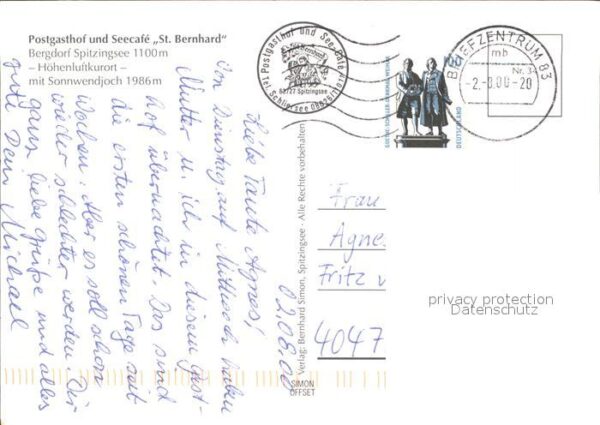 Postgasthof und Seecafé „St. Bernhard"
Bergdorf Spitzingsee 1100 m
– Höhenluftkurort –
mit Sonnwendjoch 1986 m
02.08.00
Liebe Tante Agnes,
von Dienstag auf Mittwoch haben
Mutter u. ich in diesem Gast-
hof übernachtet. Das sind
die ersten schönen Tage seit
Wochen. Aber es soll schon
wieder schlechter werden. Dir
ganz liebe Grüße und alles
gute Dein Michael
Verlag: Bernhard Simon, Spitzingsee · Alle Rechte vorbehalten
SIMON
OFFSET
Postgasthof und See-Café
83727 Spitzingsee
Tel. Schliersee
DEUTSCHLAND
BRIEFZENTRUM 83
mb
-2.-8.00-20
Frau
Agnes
Fritz
4047
privacy protection
Datenschutz